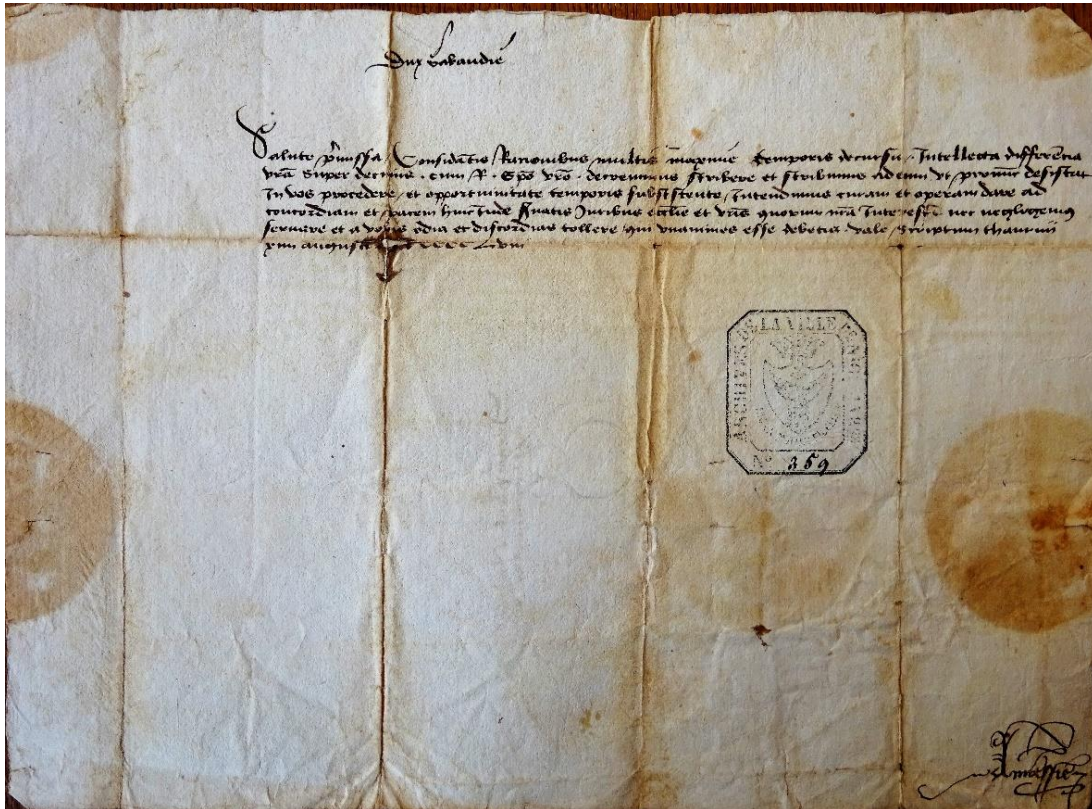 Dux Sabaudie
Salute p̄missa. Considātis Rationibus multis maxime temporis decursu. Intellecta differētia
vr̄a super decimis. cum R. Ep̄o vr̄o. decrevimus scribere et scribimus ad eum ut desistat
In vos procedere. et opportunitate temporis subsistente. Intendimus curam et operam dare ad
concordiam et pacem hinc Inde s̄uatis Iuribus eccl̄ie et vr̄is quorum nr̄a Interest nec negligemus
servare et a vobis odia et discordias tollere qui unanimes esse debetis. vale. Scriptum thaurini
augusti Lviii
ARCHIVES DE LA VILLE DE
No 359